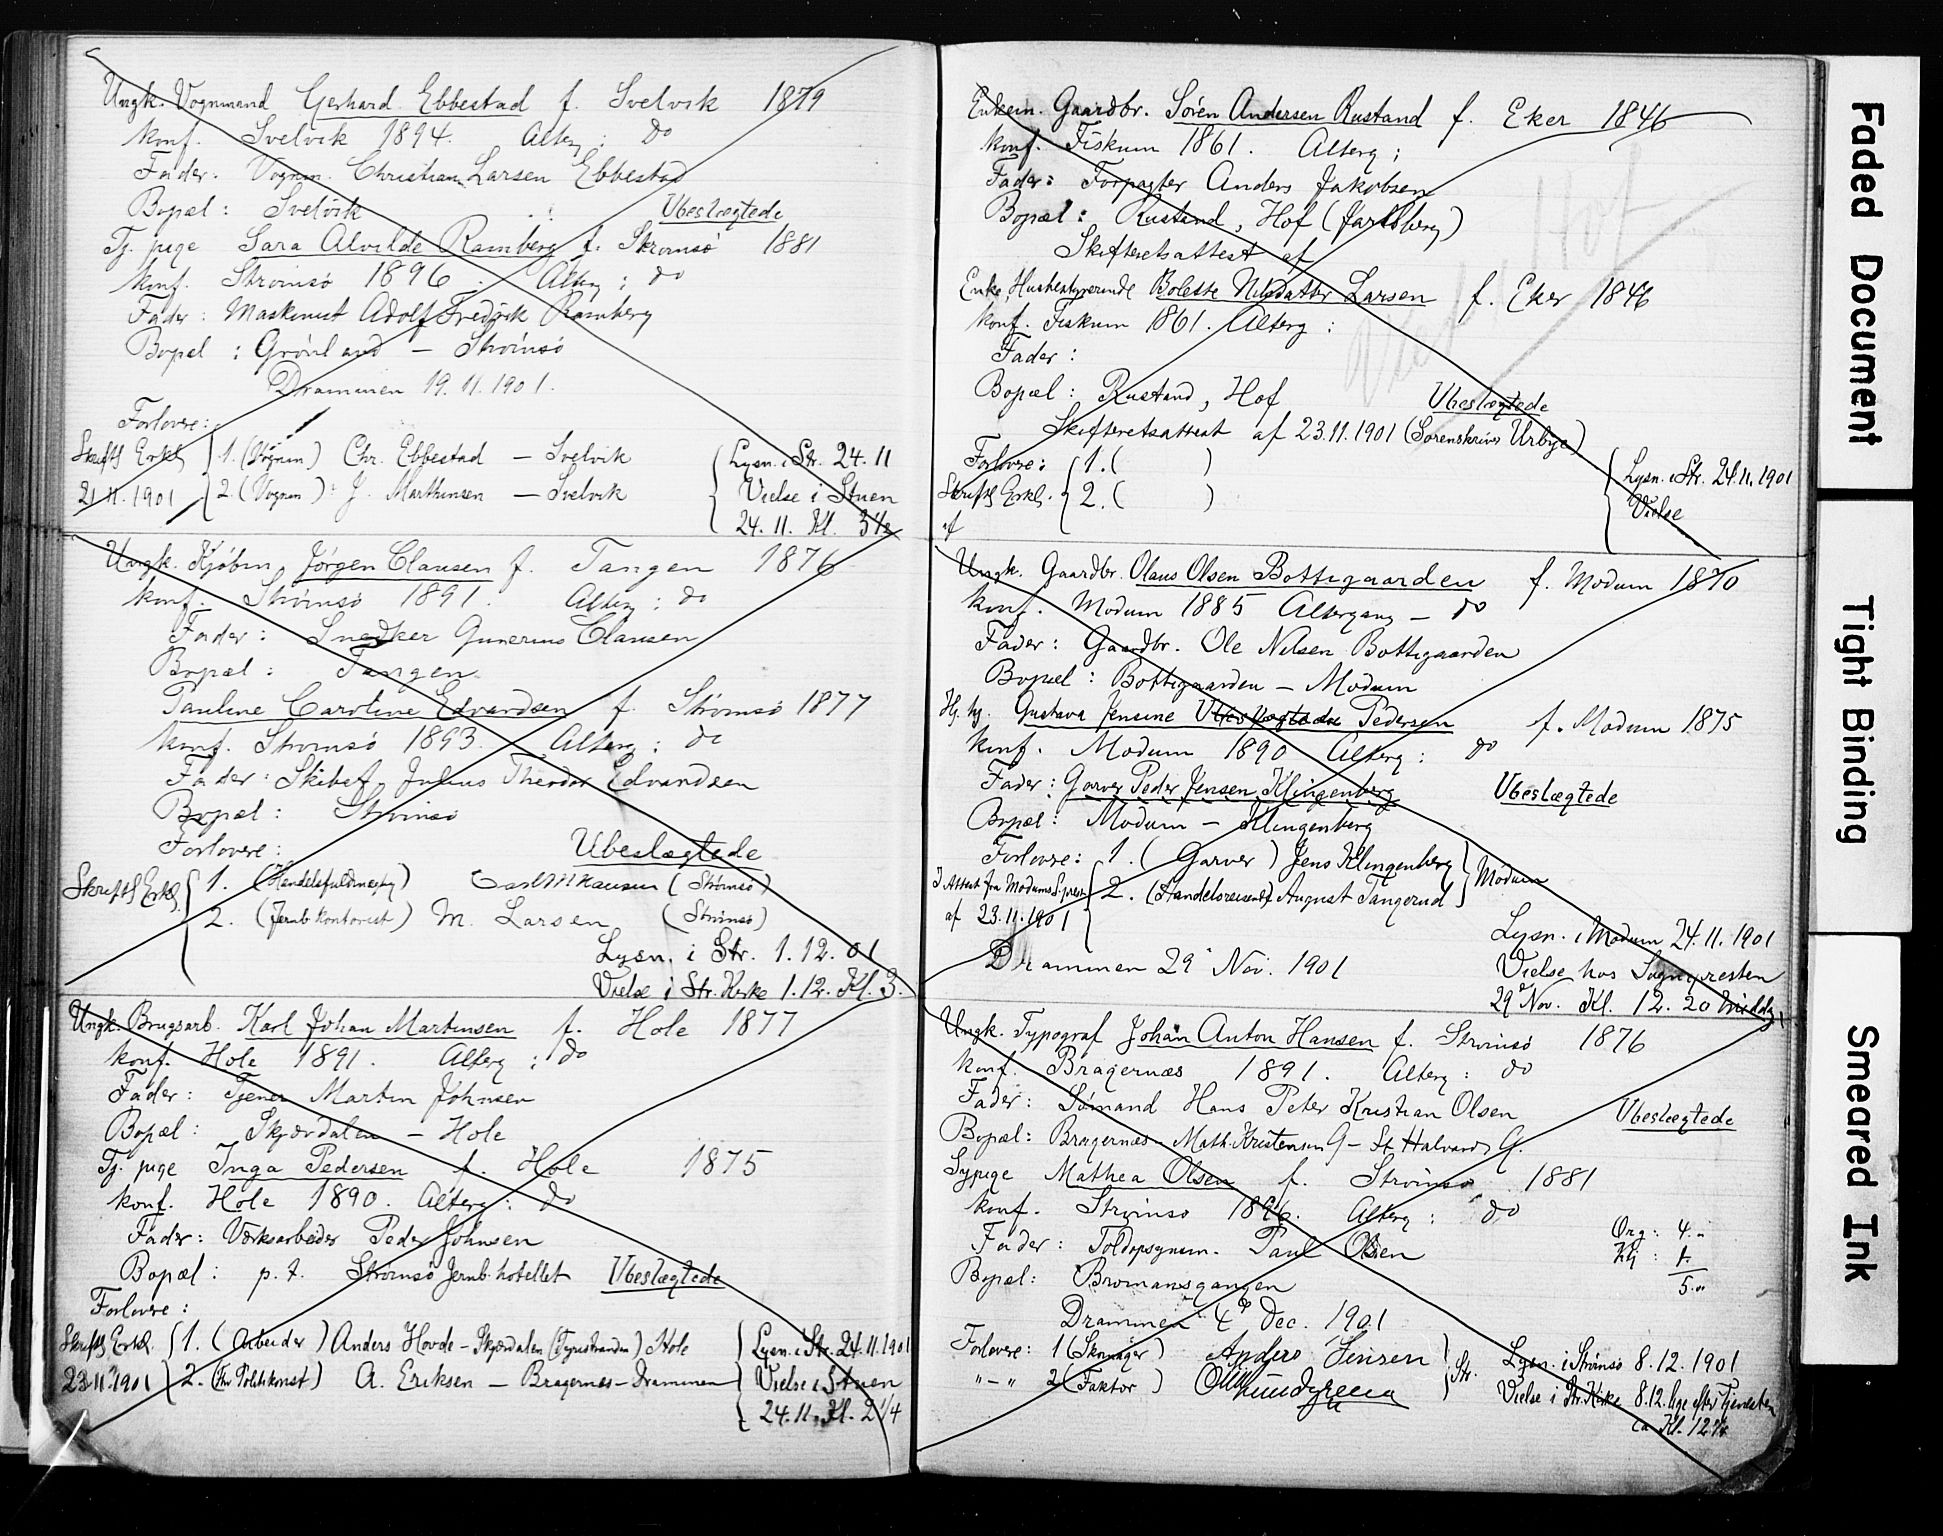 Ungk. Vognmand Gerhard Ebbestad f. Svelvik 1879
konf. Svelvik 1894. Alterg: do
Fader: Vognm. Christian Larsen Ebbestad
Bopæl: Svelvik Ubeslægtede
Tj. pige Sara Alvilde Ramberg f. Strømsø 1881
konf. Strømsø 1896. Alterg: do
Fader: Maskinist Adolf Fredrik Ramberg
Bopæl: Grønland – Strømsø
Drammen 19.11.1901.
Forlovere:
Skriftl Erkl 1. (Vognm) Chr. Ebbestad – Svelvik Lysn. i Str. 24.11
21.11.1901 2. (Vognm): J. Marthinsen – Svelvik Vielse i Stuen
24.11. Kl. 3½
Ungk. Kjøbm. Jørgen Clausen f. Tangen 1876
konf. Strømsø 1891. Alterg: do
Fader: Snedker Gunerius Clausen
Bopæl: Tangen
Pauline Caroline Edvardsen f. Strømsø 1877
konf. Strømsø 1893. Alterg: do
Fader: Skibsf. Julius Theodor Edvardsen
Bopæl: Strømsø
Forlovere: Ubeslægtede
Skriftl Erkl. 1. (Handelsfuldmægtg) (Strømsø)
2. (Jernb kontorist) M. Larsen (Strømsø)
Lysn. i Str. 1.12.01
Vielse i Str. Kirke 1.12. Kl. 3.
Ungk. Brugsarb. Karl Johan Martinsen f. Hole 1877
konf. Hole 1891. Alterg: do
Fader: Tjener Martin Johnsen
Bopæl: Skjærdalen – Hole
Tj. pige Inga Pedersen f. Hole 1875
konf. Hole 1890. Alterg: do
Fader: Værksarbeider Peder Johnsen
Bopæl: p.t. Strømsø Jernb. hotellet Ubeslægtede
Forlovere:
Skriftl Erkl. 1. (Arbeider) Anders Hovde – Skjærdalen (Tyristranden) Hole Lysn. i Str. 24.11.1901
23.11.1901 2. A. Eriksen – Bragernes – Drammen Vielse i Stuen
24.11. Kl. 2¼
Enkem. Gaardbr. Søren Andersen Rustand f. Eker 1846
konf. Fiskum 1861. Alterg:
Fader: Forpagter Anders Jakobsen
Bopæl: Rustand, Hof (Jarlsberg)
Skifteretsattest af
Enke Husbestyrerinde Bolette Nilsdatter Larsen f. Eker 1846
konf. Fiskum 1861. Alterg:
Fader:
Bopæl: Rustand, Hof Ubeslægtede
Skifteretsattest af 23.11.1901 (Sorenskriver Urbye)
Viet i Hof
Forlovere: 1. ( ) Lysn. i Str. 24.11.1901
Skriftl Erkl. 2. ( ) Vielse
af
Ungk. Gaardbr. Olaus Olsen Bottegaarden f. Modum 1870
konf. Modum 1885 Altergang – do
Fader: Gaardbr. Ole Nilsen Bottegaarden
Bopæl: Bottegaarden – Modum
Gustava Jensine Ubeslægtede Pedersen f. Modum 1875
konf. Modum 1890 Alterg: do
Fader: Garver Peder Jensen Klingenberg Ubeslægtede
Bopæl: Modum – Klingenberg
Forlovere: 1. (Garver) Jens Klingenberg Modum
I Attest fra Modums S.prest 2. (Handelsreisende) August Tangerud
af 23.11.1901
Lysn. i Modum 24.11.1901
Drammen 29 Nov. 1901 Vielse hos Sognepresten
29 Nov. Kl. 12.20 middg.
Ungk. Typograf Johan Anton Hansen f. Strømsø 1876
konf. Bragernæs 1891. Alterg: do
Fader: Sømand Hans Peter Kristian Olsen Ubeslægtede
Bopæl: Bragernæs Math. Kristensen G – St Halvards G.
Sypige Mathea Olsen f. Strømsø 1881
konf. Strømsø 1896. Alterg: do
Fader: Toldopsynsm. Paul Olsen Org: 4.
Klj: 1.
Bopæl: Bromansgangen 5.
Drammen 4 Dec. 1901
Forlovere: 1 (Skomager) Anders Jensen Str. Lysn. i Strømsø 8.12.1901
"–" 2 (Faktor) Vielse i Str. Kirke 8.12. lige efter Tjenesten
ca Kl. 12¾
Faded Document
Tight Binding
Smeared Ink